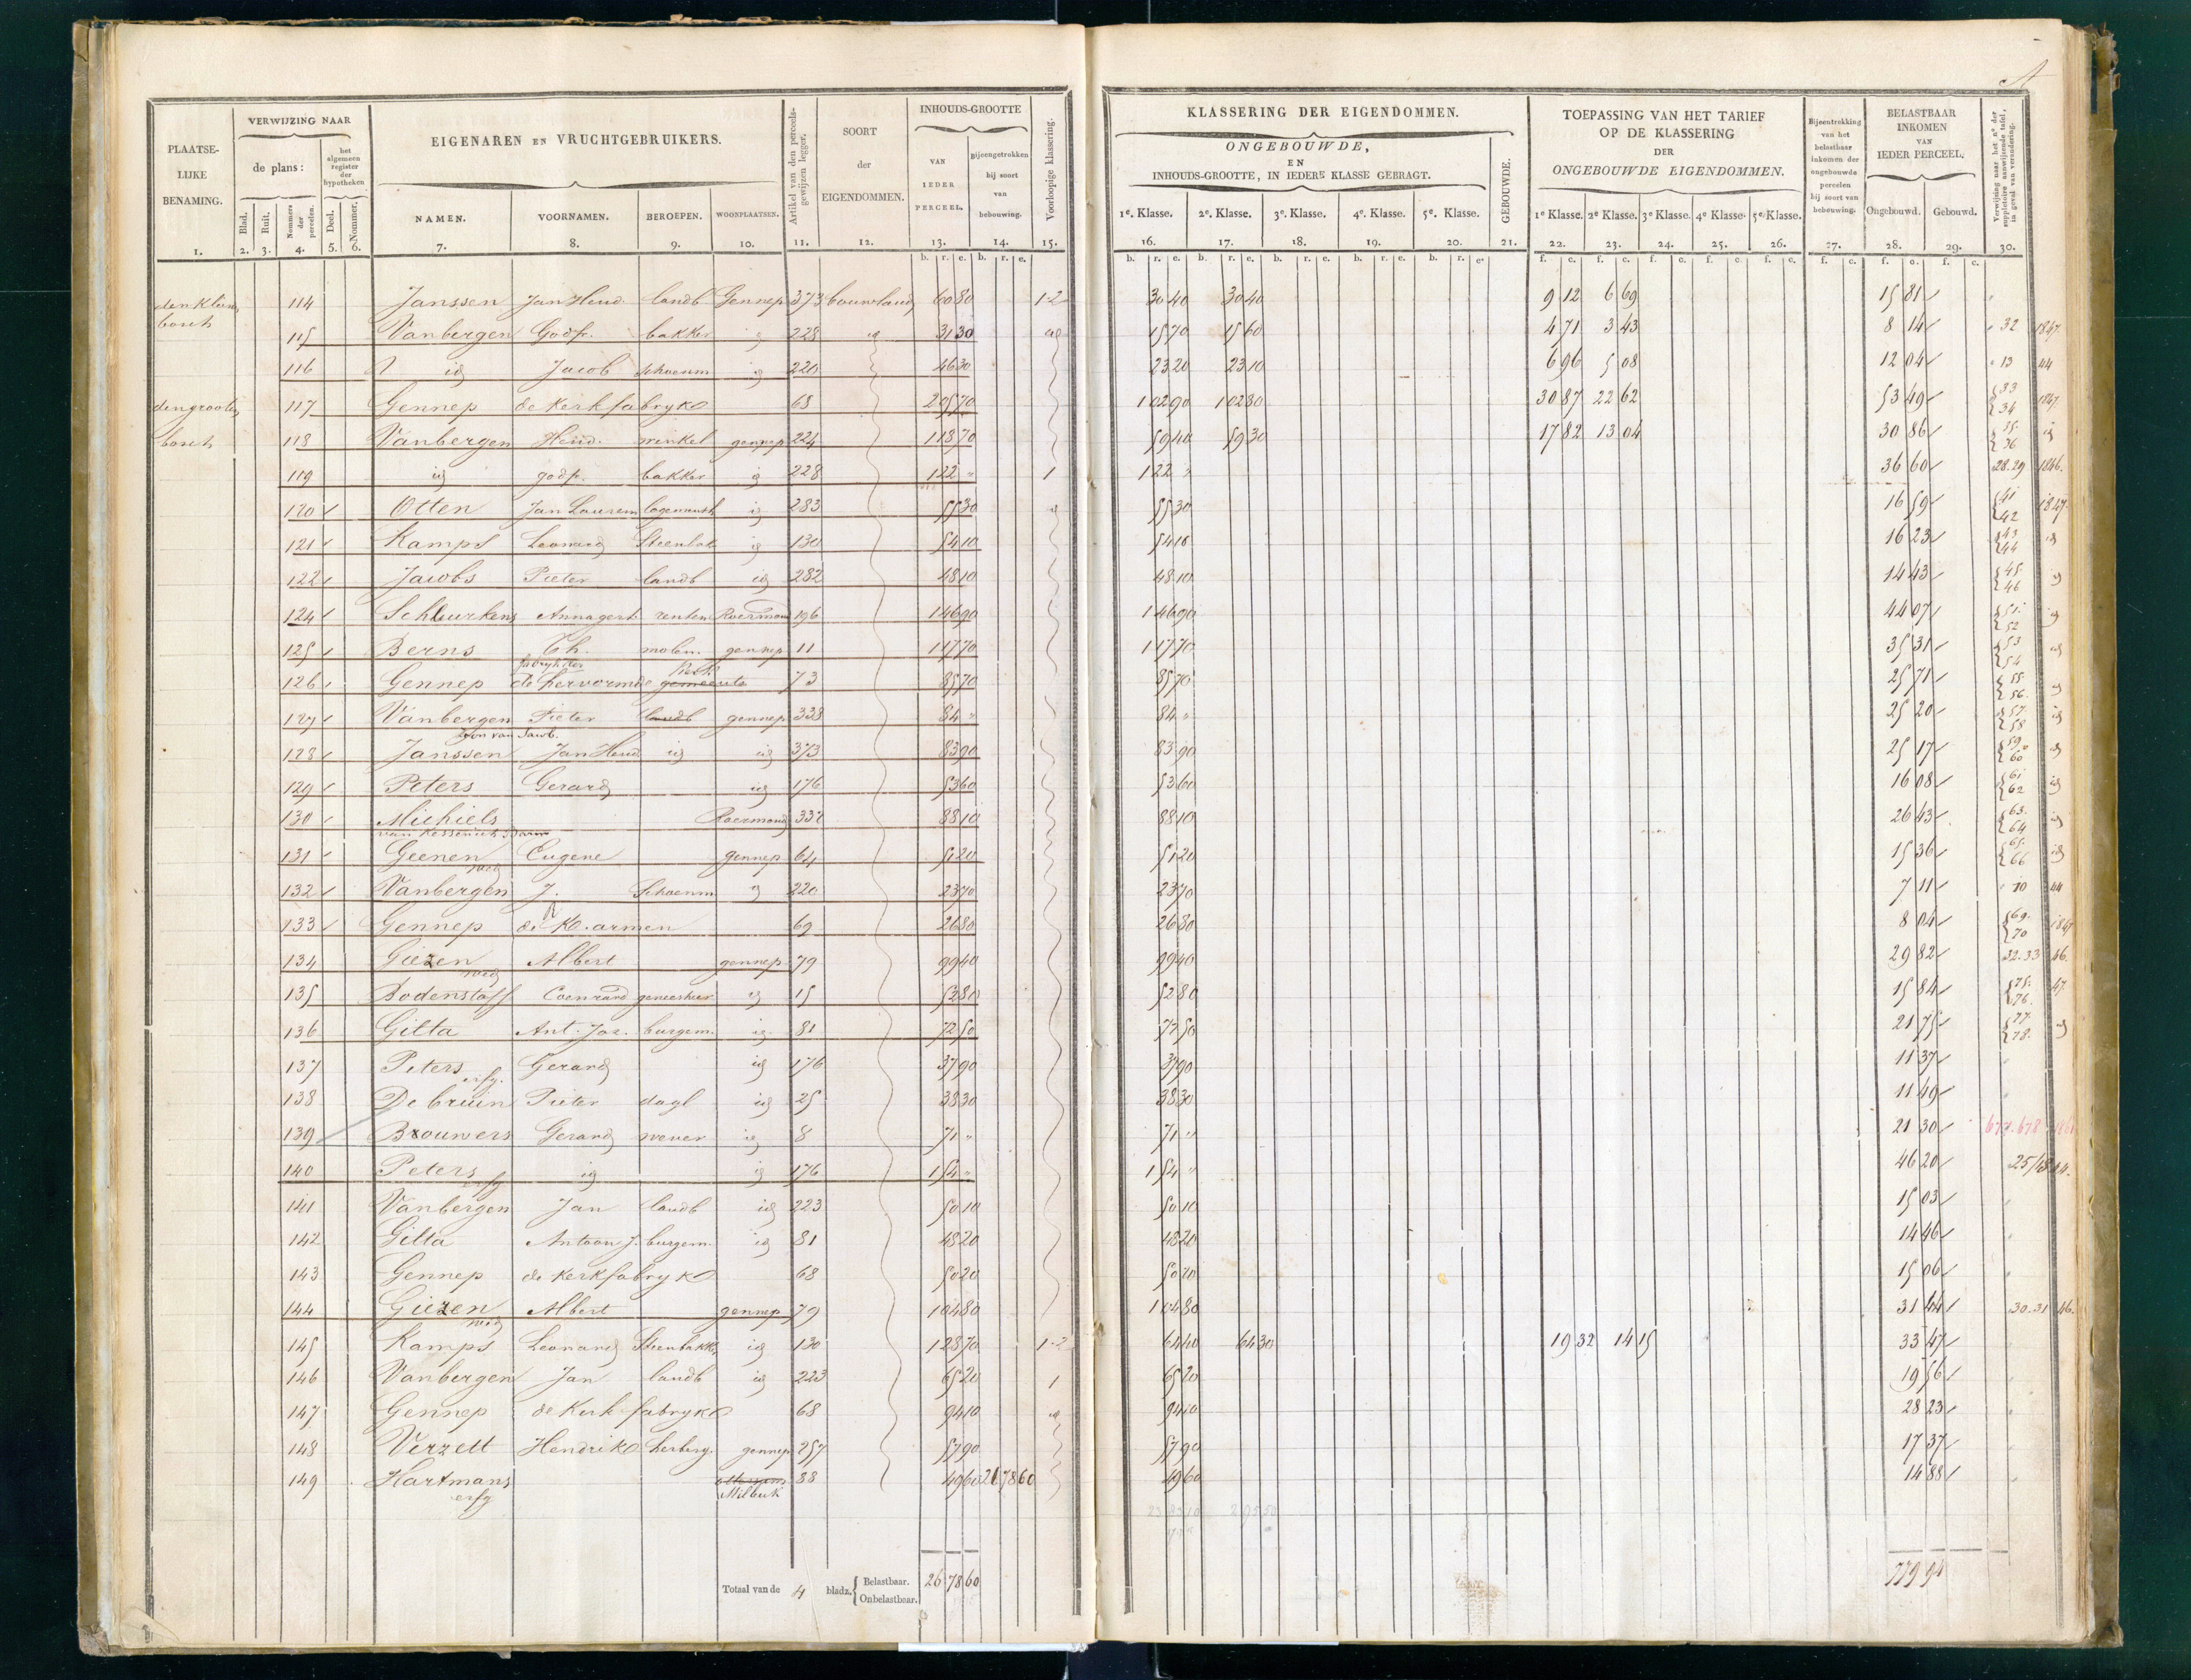 A
PLAATSE-
LIJKE
BENAMING.
VERWIJZING NAAR
de plans:
het algemeen register der hypotheken
Blad. Ruit. Nommers der perceelen. Deel. Nommer.
EIGENAREN EN VRUCHTGEBRUIKERS.
NAMEN. VOORNAMEN. BEROEPEN. WOONPLAATSEN.
Artikel van den perceels-gewijzen legger.
SOORT
der
EIGENDOMMEN.
INHOUDS-GROOTTE
VAN IEDER PERCEEL.
Bijeengetrokken bij soort van bebouwing.
Voorloopige klassering.
1. 2. 3. 4. 5. 6. 7. 8. 9. 10. 11. 12. 13. 14. 15.
b. r. e. b. r. e.
KLASSERING DER EIGENDOMMEN.
ONGEBOUWDE,
EN
INHOUDS-GROOTTE, IN IEDERE KLASSE GEBRAGT.
GEBOUWDE.
1e. Klasse. 2e. Klasse. 3e. Klasse. 4e. Klasse. 5e. Klasse.
TOEPASSING VAN HET TARIEF
OP DE KLASSERING
DER
ONGEBOUWDE EIGENDOMMEN.
1e Klasse. 2e Klasse. 3e Klasse. 4e Klasse. 5e Klasse.
Bijeentrekking van het belastbaar inkomen der ongebouwde perceelen bij soort van bebouwing.
BELASTBAAR
INKOMEN
VAN
IEDER PERCEEL.
Ongebouwd. Gebouwd.
Verwijzing naar het no der suppletoire aanwijzende tafel, in geval van verandering.
16. 17. 18. 19. 20. 21. 22. 23. 24. 25. 26. 27. 28. 29. 30.
114 Janssen Jan Hend landb Gennep 373 bouwland 60 80 1-2 30 40 30 40 9 12 6 69 15 81
bosch
115 Vanbergen Godfr. bakker id 228 id 31 30 id 15 70 15 60 4 71 3 43 8 14 32 1847
116 id Jacob Schoenm id 220 46 30 23 20 23 10 6 96 5 08 12 04 13 44
den grooten 117 Gennep de Kerkfabryk 68 2 05 70 1 02 90 1 02 80 30 87 22 62 53 49 33 34 1847
bosch 118 Vanbergen Hend. winkel gennep 224 1 18 70 59 40 59 30 17 82 13 04 30 86 35 36 id
119 id godfr. bakker id 228 1 22 " 1 1 22 " 36 60 28.29 1846.
120 Otten Jan Laurens id 283 55 30 id 55 30 16 59 41 42 1847
121 Kamps Leonard Steenbak id 130 54 10 54 10 16 23 43 44 id
122 Jacobs Pieter landb id 282 48 10 48 10 14 43 45 46 id
124 Scheurkens Annagert renten Roermond 196 1 46 90 1 46 90 44 07 51 52 id
125 Berns Th. molen. gennep 11 1 17 70 1 17 70 35 31 53 54 id
fabryk der Kerk
126 Gennep de hervormde gemeente 73 85 70 85 70 25 71 55 56 id
127 Vanbergen Pieter landb gennep 338 84 " 84 " 25 20 57 58 id
Zoon van Jacob.
128 Janssen Jan Hend id id 373 83 90 83 90 25 17 59 60 id
129 Peters Gerard id 176 53 60 53 60 16 08 61 62 id
130 Michiels Roermond 337 88 10 88 10 26 43 63 64 id
van Kessenich
131 Geenen Eugene gennep 64 51 20 51 20 15 36 65 66 id
wed
132 Vanbergen J. Schoenm id 220 23 70 23 70 7 11 10 44
133 Gennep de K. armen 69 26 80 26 80 8 04 69. 70 1847
134 Giezen Albert gennep 79 99 40 99 40 29 82 32.33 46.
wed
135 Bodenstaff Coenrard geneesheer id 15 52 80 52 80 15 84 75. 76. 47.
136 Gitta Ant. Jos. burgem. id 81 72 50 72 50 21 75 77 78. id
137 Peters Gerard id 176 37 90 37 90 11 37
erfg.
138 De bruin Pieter dagl id 25 38 30 38 30 11 49
139 Brouwers Gerard wever id 8 71 " 71 " 21 30 677.678
140 Peters id id 176 1 54 " 1 54 " 46 20 25/48 44.
erfg
141 Vanbergen Jan landb id 223 50 10 50 10 15 03
142 Gitta Antoon J. burgem. id 81 48 20 48 20 14 46
143 Gennep de Kerkfabryk 68 50 20 50 20 15 06
144 Giezen Albert gennep 79 1 04 80 1 04 80 31 44 30.31 46.
wed
145 Kamps Leonard Steenbakk id 130 1 28 70 1-2 64 40 64 30 19 32 14 15 33 47
146 Vanbergen Jan landb id 223 65 20 1 65 20 19 56
147 Gennep de Kerk fabryk 68 94 10 id 94 10 28 23
148 Verzett Hendrik herberg. gennep 257 57 90 57 90 17 37
149 Hartmans 88 49 60 26 78 60 49 60 14 88
erfg Milbeek
Totaal van de 4 bladz. Belastbaar. 26 78 60 779 94
Onbelastbaar.